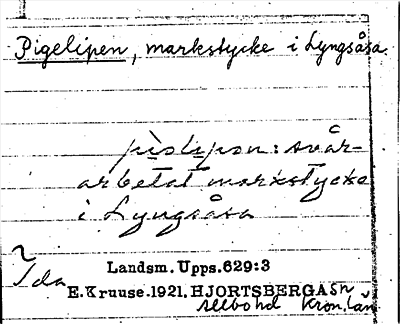 Pigelipen, markstycke i Lyngsåsa.
pislipən: svår-
arbetat markstycke
i Lyngsåsa
Ida
Landsm. Upps. 629:3
E. Kruuse. 1921. HJORTSBERGA SN
Allbo hd Kron. län